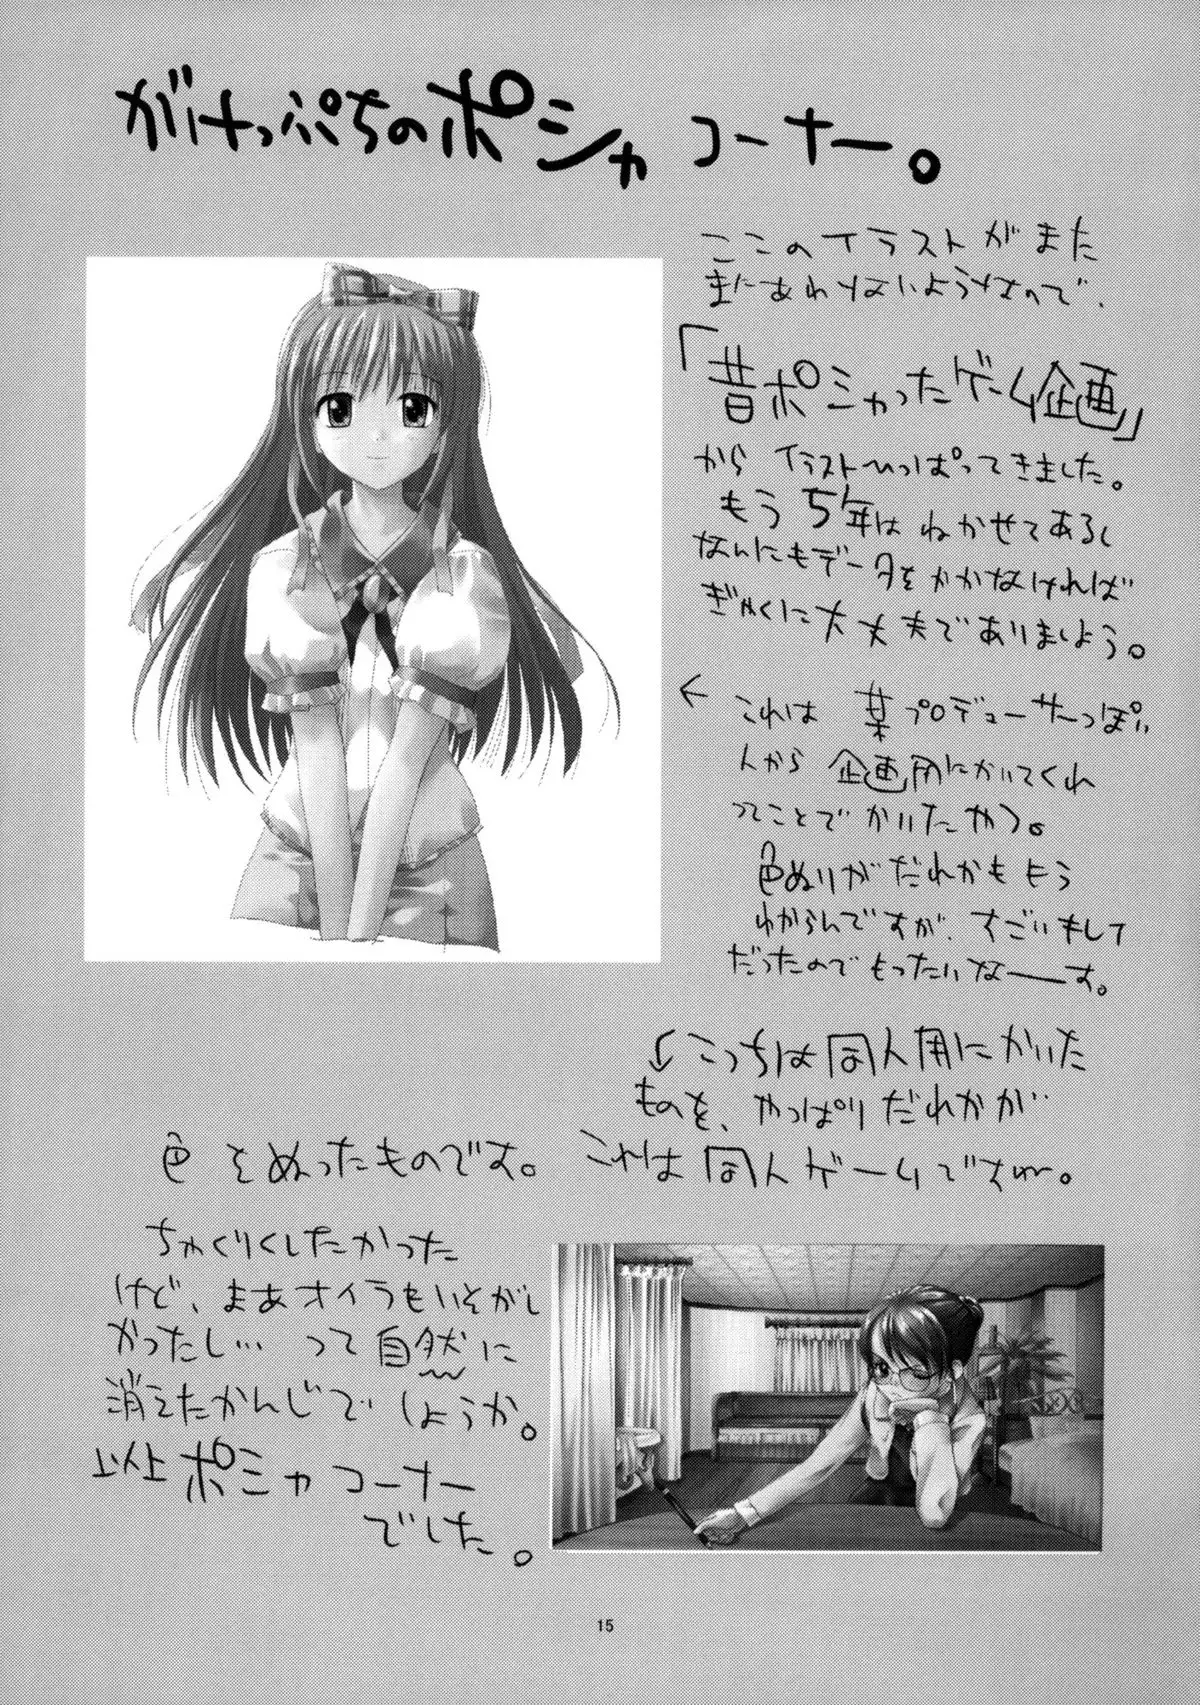 がけっぷちのポシャコーナー。
ここのイラストがまた
まにあわないようなので、
「昔ポシャったゲーム企画」
から イラストひっぱってきました。
もう5年はねかせてあるし
なんにもデータをかかなければ
ぎゃくに大丈夫でありましょう。
← これは 某プロデューサーっぽい
人から 企画用にかいてくれ
ってことでかいたやつ。
色ぬりがだれかももう
わからんですが、すごいまして
だったのでもったいなーす。
↓こっちは同人用にかいた
ものを、やっぱりだれかが…
色をぬったものです。これは同人ゲームですね。
ちゃくりくしたかった
けど、まあオイラもいそがし
かったし… って自然に
消えたかんじでしょうか。
以上ポシャコーナー
でした。
15